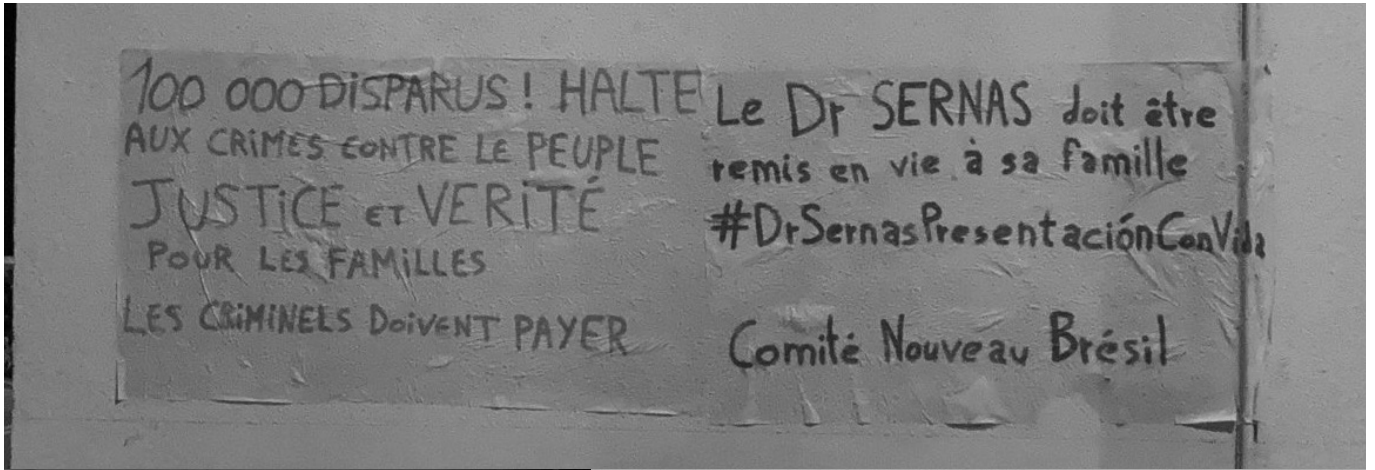 100 000 DiSPARUS ! HALTE
AUX CRiMES CONTRE LE PEUPLE
JUSTiCE ET VERiTÉ
POUR LES FAMiLLES
LES CRiMiNELS DOiVENT PAYER
Le Dr SERNAS doit être
remis en vie à sa famille
#DrSernasPresentaciónConVida
Comité Nouveau Brésil